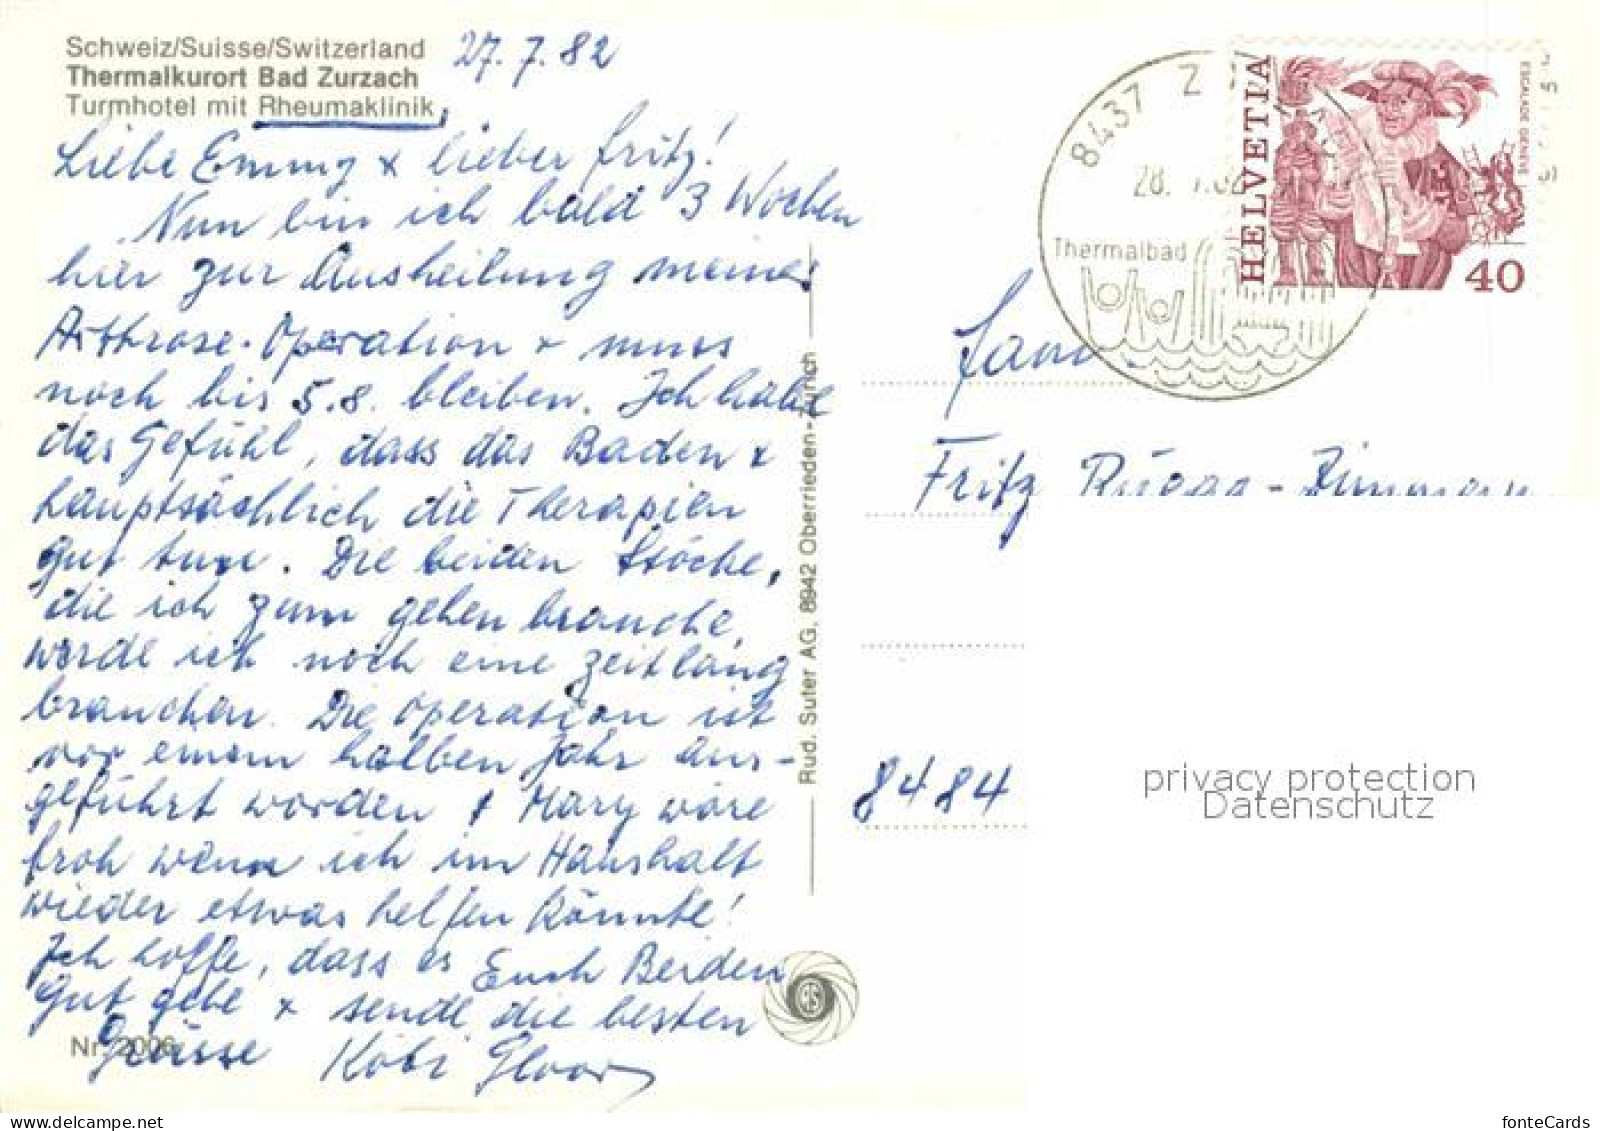 Schweiz/Suisse/Switzerland
Thermalkurort Bad Zurzach
Turmhotel mit Rheumaklinik,
27.7.82
Liebe Emmy + lieber Fritz!
Nun bin ich bald 3 Wochen
hier zur Ausheilung meiner
Arthrose-Operation + muss
noch bis 5.8. bleiben. Ich habe
das Gefühl, dass das Baden +
hauptsächlich die Therapien
gut tun. Die beiden Stöcke,
die ich zum gehen brauche,
werde ich noch eine Zeitlang
brauchen. Die Operation ist
vor einem halben Jahr aus-
geführt worden + Mary wäre
froh wenn ich im Haushalt
wieder etwas helfen könnte!
Ich hoffe, dass es Euch Beiden
gut gehe + sende die besten
Grüsse Köbi Gloor
Nr. 2006
Rud. Suter AG, 8942 Oberrieden-Zürich
8437 Z
28. 7.82
Thermalbad
HELVETIA
ESCALADE GENÈVE
40
Fam
Fritz Rüegg-Zimmermann
8484
privacy protection
Datenschutz
fonteCards